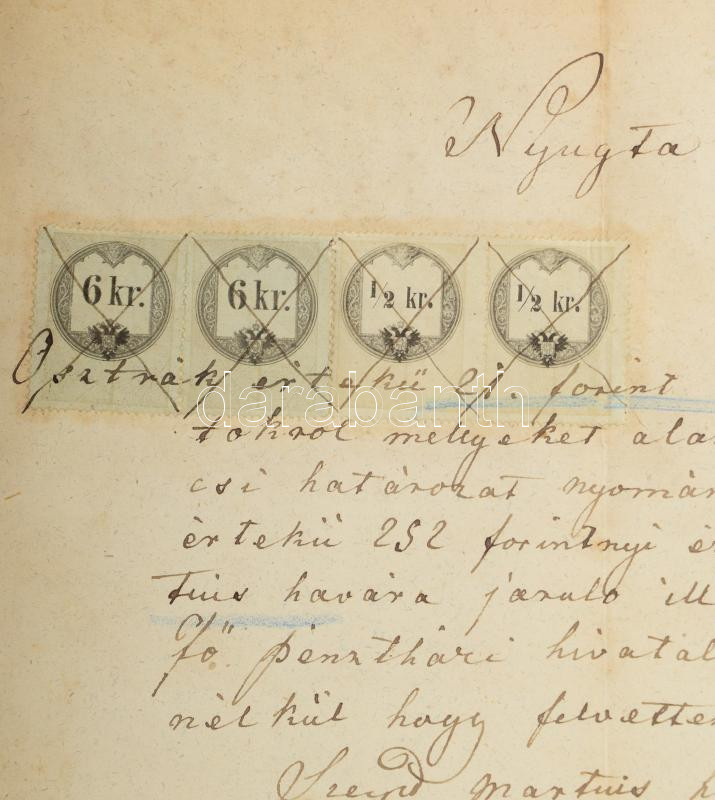 Nyugta
6 kr. 6 kr. 1/2 kr. 1/2 kr.
Osztrák értekü 21. forint
darabanth
tokról mellyeket ala
csi határozat nyomán
értekü 252 forintnyi é
tius havára jaruló ill
fő pénzthári hivatal
nélkül hogy felvettem
martius